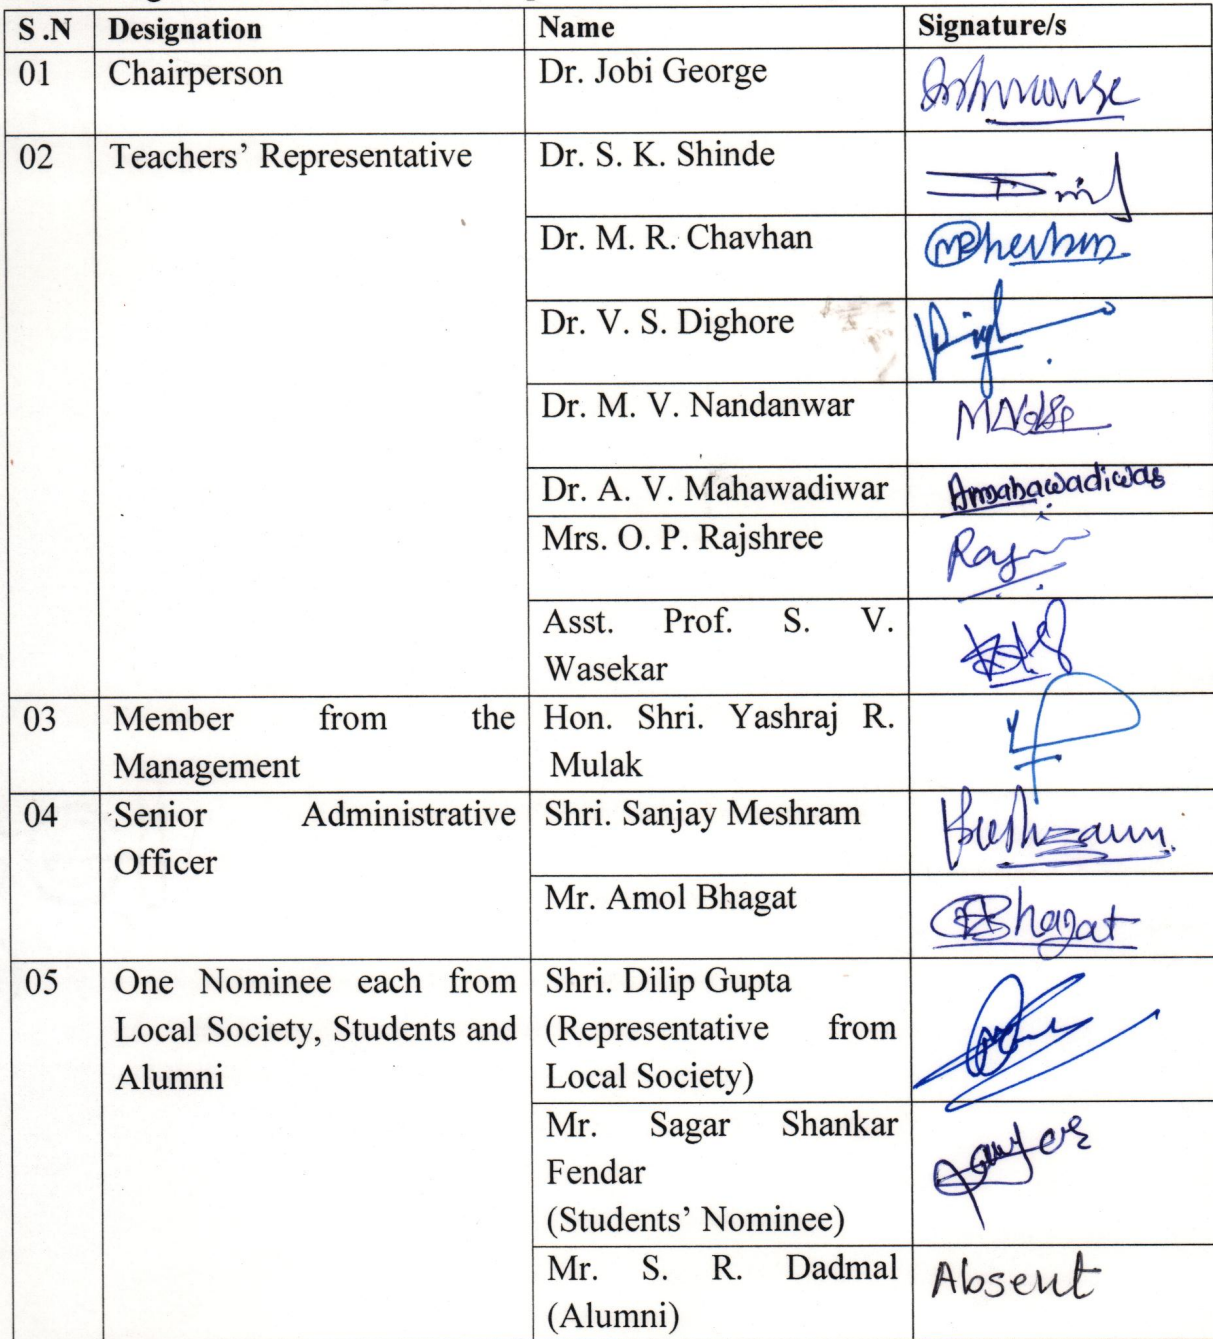 S .N Designation Name Signature/s
01 Chairperson Dr. Jobi George
02 Teachers’ Representative Dr. S. K. Shinde
Dr. M. R. Chavhan
Dr. V. S. Dighore
Dr. M. V. Nandanwar
Dr. A. V. Mahawadiwar Amahawadiwar
Mrs. O. P. Rajshree
Asst. Prof. S. V.
Wasekar
03 Member from the Hon. Shri. Yashraj R.
Management Mulak
04 Senior Administrative Shri. Sanjay Meshram
Officer
Mr. Amol Bhagat Bhagat
05 One Nominee each from Shri. Dilip Gupta
Local Society, Students and (Representative from
Alumni Local Society)
Mr. Sagar Shankar
Fendar
(Students’ Nominee)
Mr. S. R. Dadmal Absent
(Alumni)